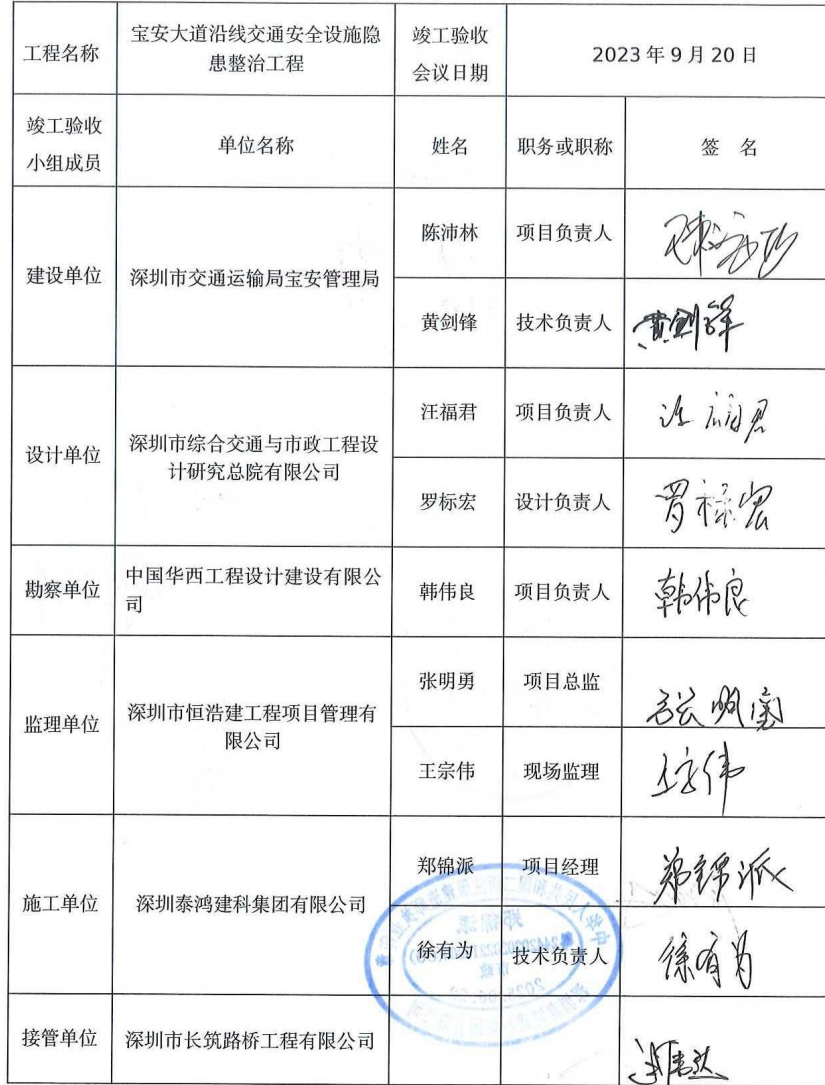 工程名称
宝安大道沿线交通安全设施隐
患整治工程
竣工验收
会议日期
2023年9月20日
竣工验收
小组成员
单位名称
姓名
职务或职称
签 名
建设单位
深圳市交通运输局宝安管理局
陈沛林
项目负责人
黄剑锋
技术负责人
黄剑锋
设计单位
深圳市综合交通与市政工程设
计研究总院有限公司
汪福君
项目负责人
汪福君
罗标宏
设计负责人
罗标宏
勘察单位
中国华西工程设计建设有限公
司
韩伟良
项目负责人
韩伟良
监理单位
深圳市恒浩建工程项目管理有
限公司
张明勇
项目总监
张明勇
王宗伟
现场监理
王宗伟
施工单位
深圳泰鸿建科集团有限公司
郑锦派
项目经理
郑锦派
徐有为
技术负责人
徐有为
接管单位
深圳市长筑路桥工程有限公司